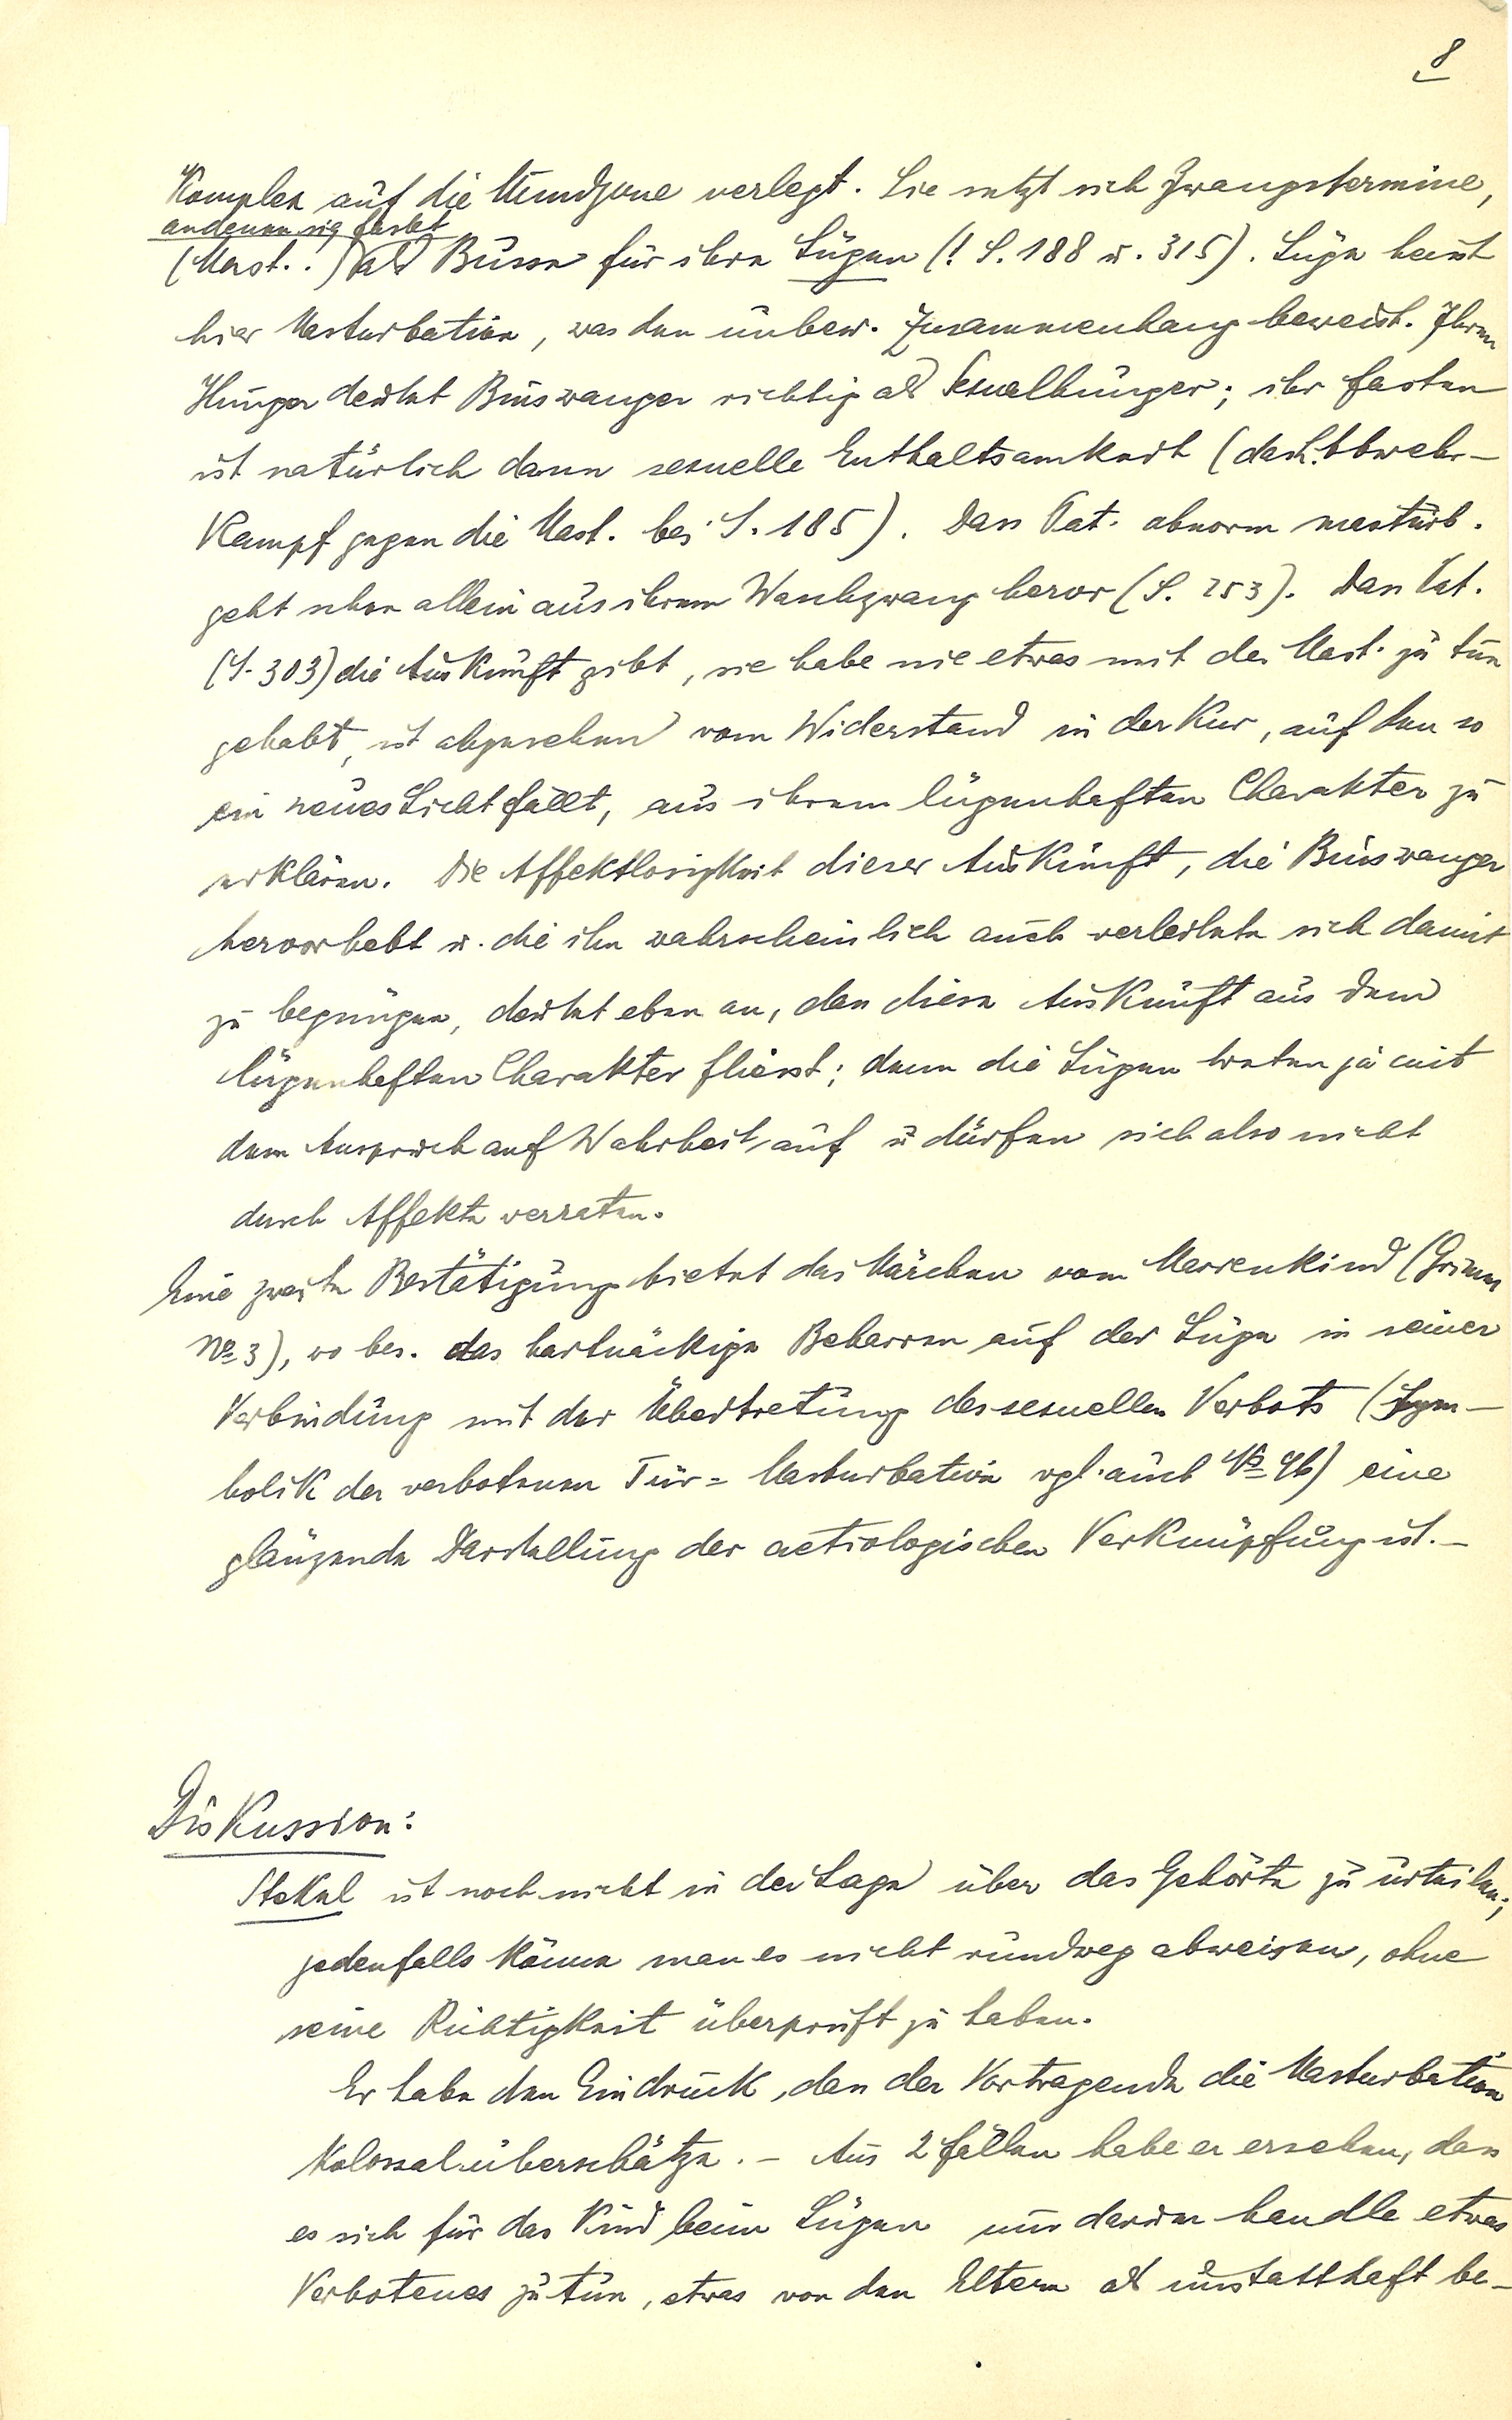 8
Komplex auf die Mundzone verlegt. Sie setzt sich Zwangstermine,
an denen sie fastet
(Mast..!) als Busse für ihre Lügen (! S. 188 u. 315). Lüge heisst
hier Masturbation, was den unbew. Zusammenhang beweist. Ihren
Hunger deutet Binswanger richtig als Sexualhunger; ihr fasten
ist natürlich dann sexuelle Enthaltsamkeit (das h. Abwehr-
Kampf gegen die Mast. bei S. 185). Dass Pat. abnorm masturb.
geht schon allein aus ihrem Waschzwang hervor (S. 253). Dass Pat.
(S. 303) die Auskunft gibt, sie habe nie etwas mit der Mast. zu tun
gehabt, ist abgesehen vom Widerstand in der Kur, auf den so
ein neues Licht fällt, aus ihrem lügenhaften Charakter zu
erklären. Die Affektlosigkeit dieser Auskunft, die Binswanger
hervorhebt u. die ihn wahrscheinlich auch verleitete sich damit
zu begnügen, deutet eben an, dass diese Auskunft aus dem
lügenhaften Charakter fliesst; denn die Lügen treten ja mit
dem Anspruch auf Wahrheit auf u dürfen sich also nicht
durch Affekte verraten.
Eine zweite Bestätigung bietet das Märchen vom Marienkind (Grimm
No 3), wo bes. das hartnäckige Beharren auf der Lüge in seiner
Verbindung mit der Übertretung des sexuellen Verbots (Sym-
bolik der verbotenen Tür = Masturbation vgl. auch No 46) eine
glänzende Darstellung der aetiologischen Verknüpfung ist. -
Diskussion:
Stekel ist noch nicht in der Lage über das Gehörte zu urteilen;
jedenfalls könne man es nicht rundweg abweisen, ohne
seine Richtigkeit überprüft zu haben.
Er habe den Eindruck, dass der Vortragende die Masturbation
kolossal überschätze. - Aus 2 fällen habe er ersehen, dass
es sich für das Kind beim Lügen nur darum handle etwas
Verbotenes zu tun, etwas von den Eltern als unstatthaft be-